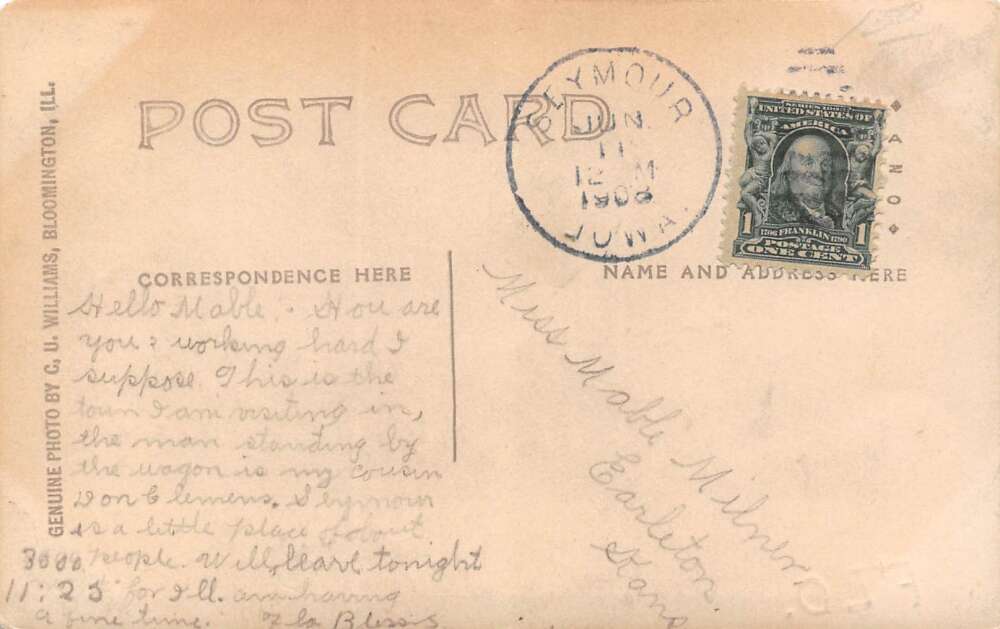 POST CARD
GENUINE PHOTO BY C. U. WILLIAMS, BLOOMINGTON, ILL.
SEYMOUR
JUN
11
12 M
1908
IOWA.
SERIES 1902
UNITED STATES OF
AMERICA
1 1
1706 FRANKLIN 1790
POSTAGE
ONE CENT
CORRESPONDENCE HERE
NAME AND ADDRESS HERE
Hello Mable. How are
you? working hard I
suppose. This is the
town I am visiting in,
the man standing by
the wagon is my cousin
Don Clemens. Seymour
is a little place about
3000 people. Will leave tonight
11:25 for Ill. am having
a fine time.
Miss Mable Milner
Earleton
Kans